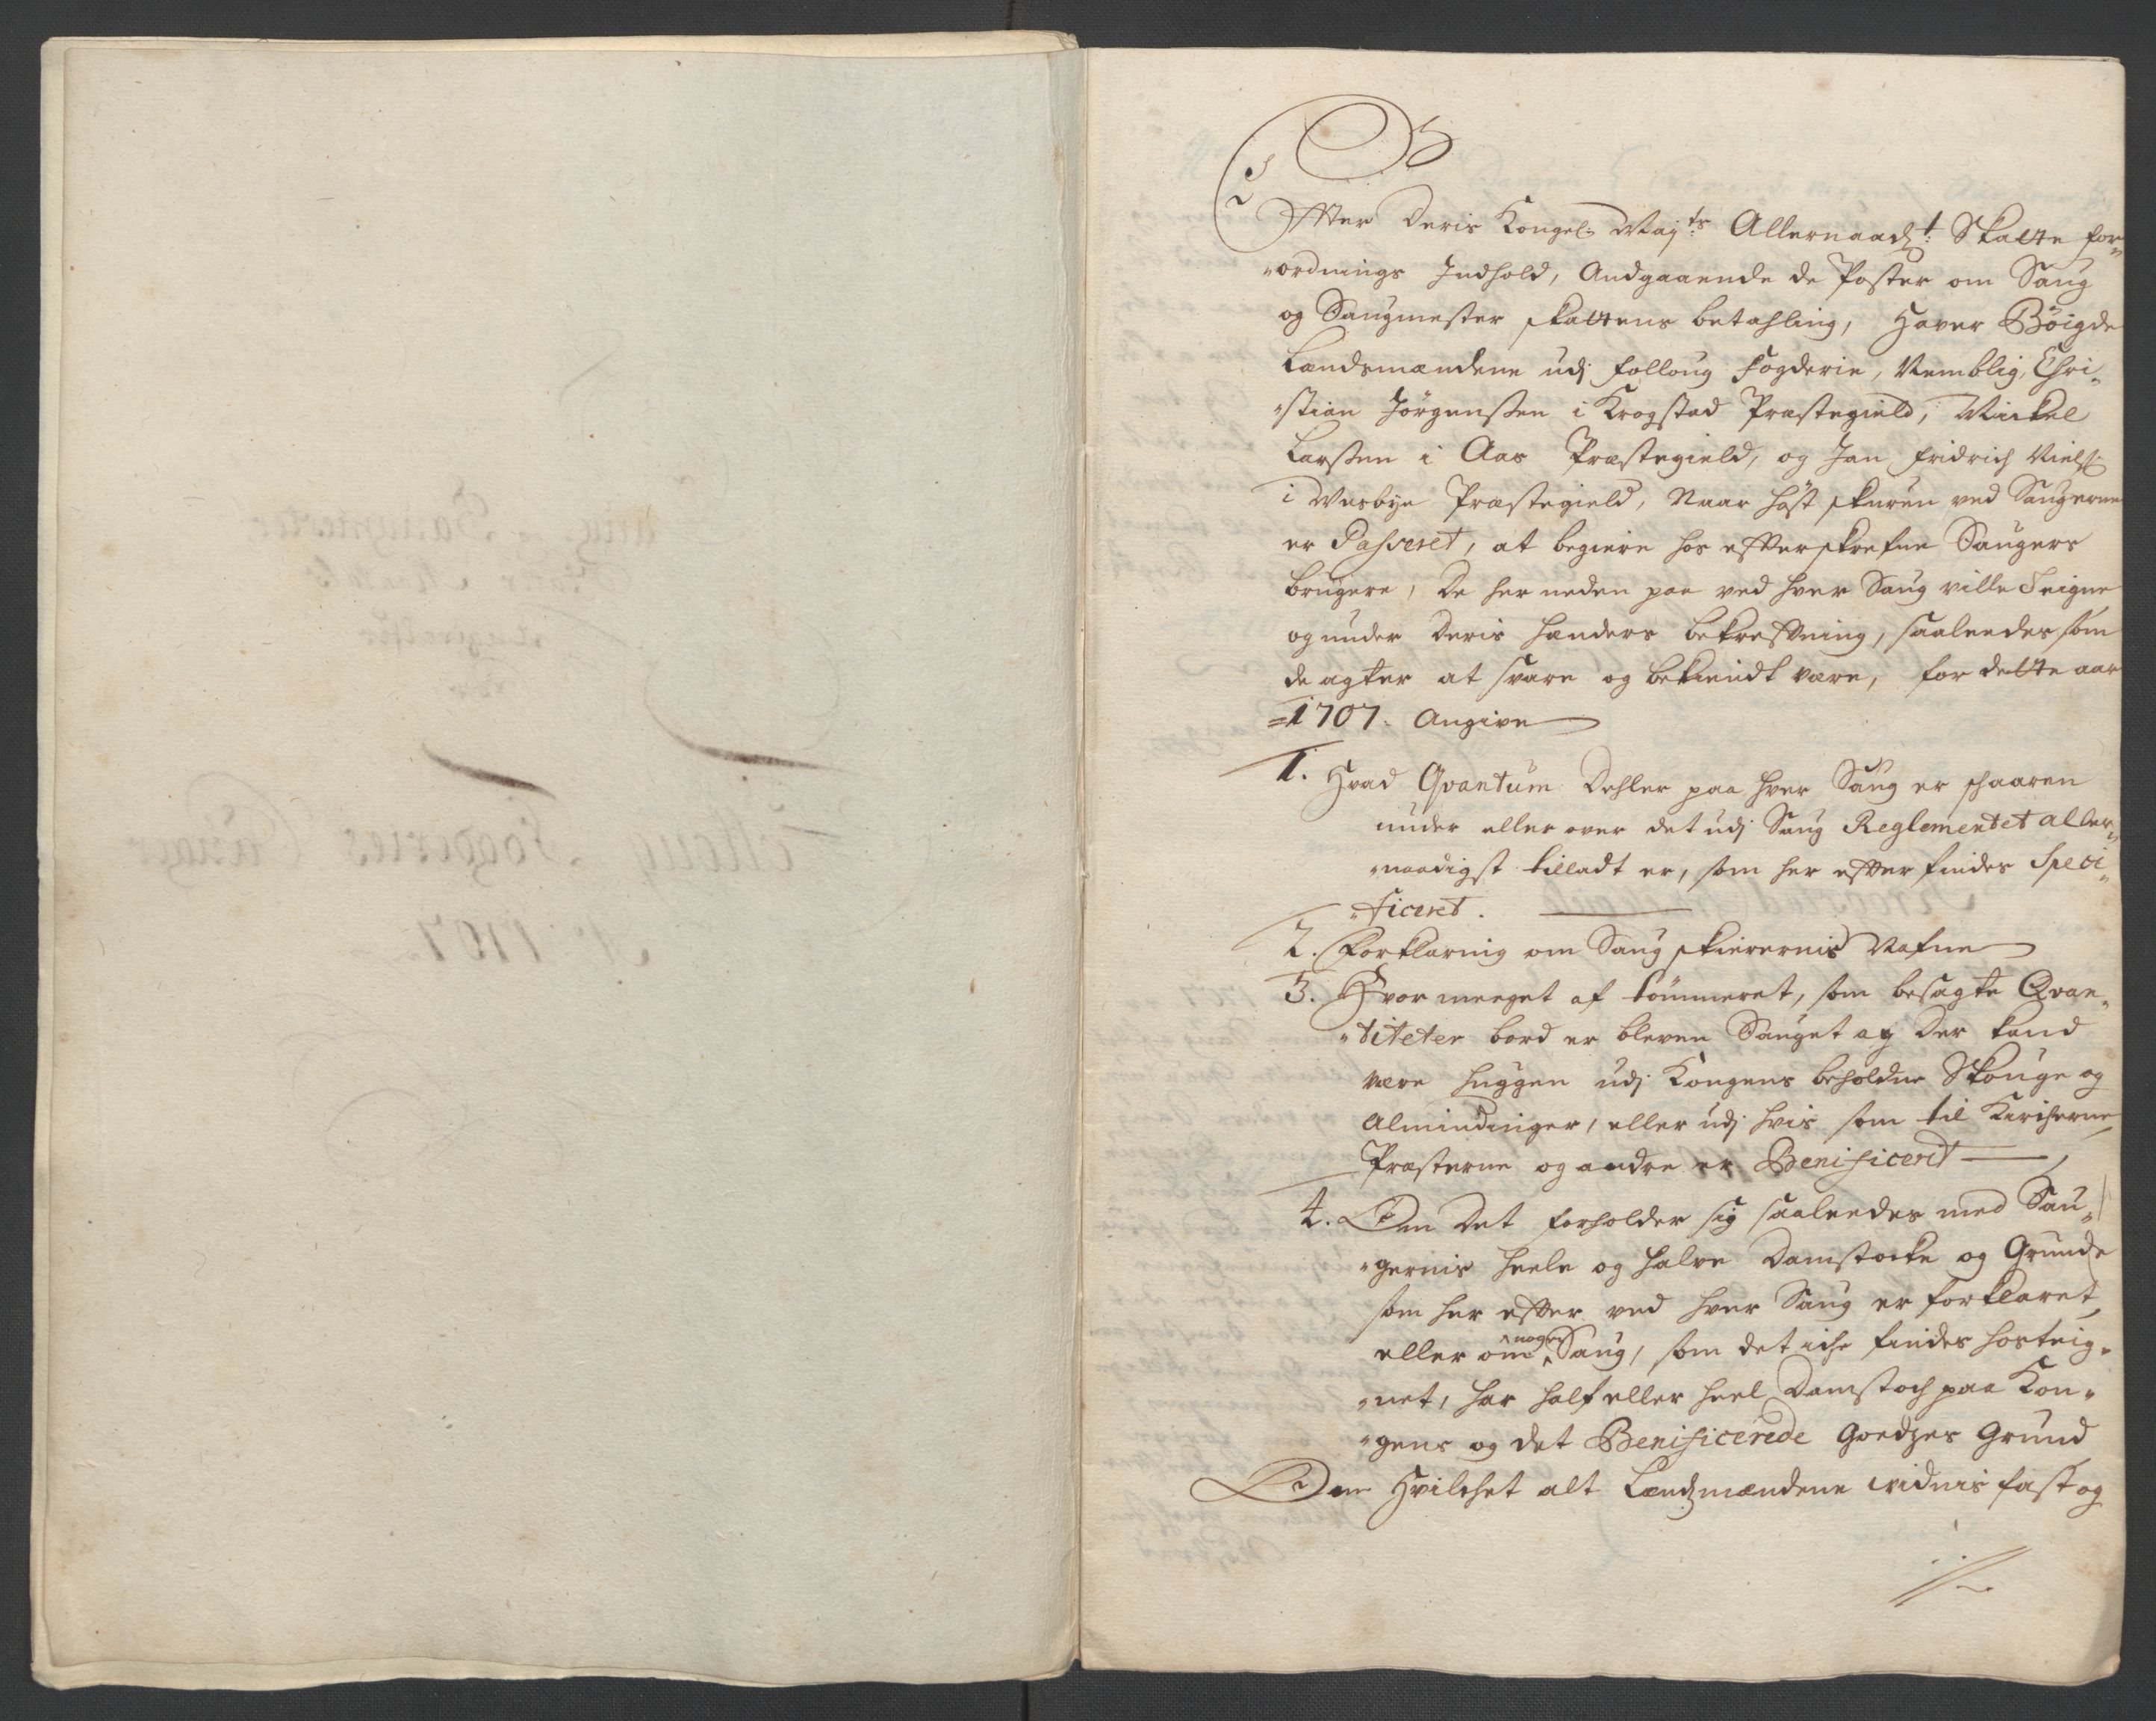 Effter Deris Kongel: Maj:ts Allernaadst: Skatte for„
„ordnings Indhold, Andgaaende de Poster om Saug
og Saugmester skattens betahling, Haver Böigde
Landsmændene udj Folloug Fogderie, Nemblig, Chri„
„stian Jörgenssen i Krogstad Præstegield, Mickel
Larssen i Aas Præstegield, og Jan Fridrich Niels:
i Wesbye Præstegield, Naar Höst skuren ved Saugerne
er Passeret, at begiere hos effterskrefne Saugers
brugere, De her neden paa ved hver Saug ville Teigne
og under Deris Hænders bekreffning, saaledes som
de agter at svare og bekiendt være, for dette aar
1707. Angive
1. Hvad Qvantum Dehler paa hver Saug er skaaren
under eller over det udj Saug Reglementet aller„
„naadigst tilladt er, som her effter findes Speci„
„ficeret.
2. Forklaring om Saug skierernis Nafne
3. Hvor meeget af tömmeret, som besagte Qvan„
„titeter bord er bleven Sauget af Der kand
være huggen udj Kongens beholdne Skouge og
Almindinger, eller udj hvis som til Kircherne,
Præsterne og andre er Benificerit
4. Om Det forholder sig saaledes med Sau„
„gernis heele og halve Damstocke og Grunde
som her effter ved hver Saug er forklaret,
eller om nogen Saug, som det iche findes hosteig„
„net, har half eller heel Damstoch paa Kon„
„gens og det Benificerede Goedzes Grund
Om Hvilchet alt Lendzmændene vidnis fast og